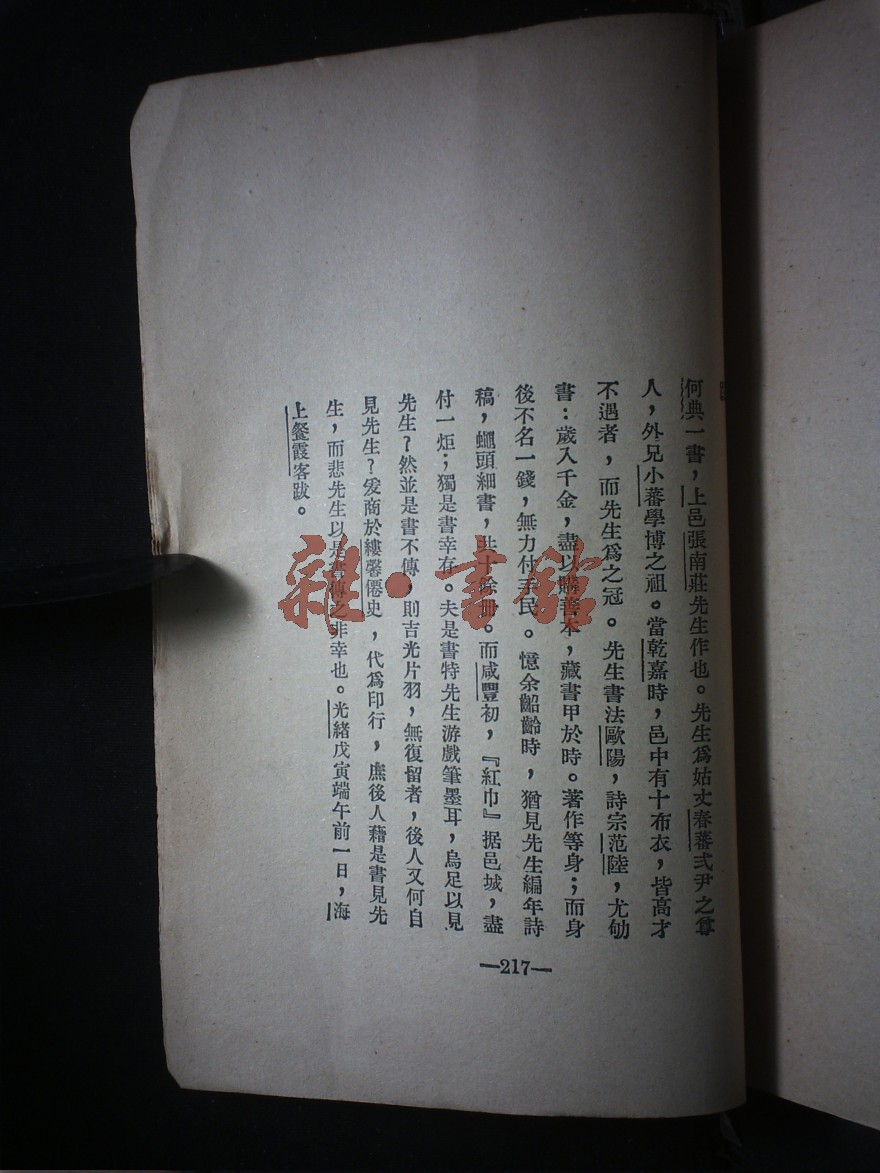 何典一書，上邑張南莊先生作也。先生爲姑丈春蕃弍尹之尊
人，外兄小蕃學博之祖。當乾嘉時，邑中有十布衣，皆高才
不遇者，而先生爲之冠。先生書法歐陽，詩宗范陸，尤劬
書：歲入千金，盡以購善本，藏書甲於時。著作等身；而身
後不名一錢，無力付手民。憶余齠齡時，猶見先生編年詩
稿，蠅頭細書，共十餘册。而咸豐初，『紅巾』据邑城，盡
付一炬；獨是書幸存。夫是書特先生游戲筆墨耳，烏足以見
先生？然並是書不傳，則吉光片羽，無復留者，後人又何自
見先生？爰商於縷馨僊史，代爲印行，庶後人藉是書見先
生，而悲先生以是書傳之非幸也。光緒戊寅端午前一日，海
上餐霞客跋。
—217—
雜·書館